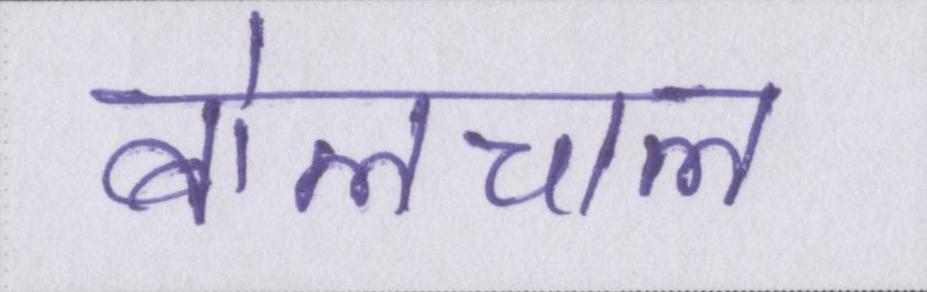 बोलचाल